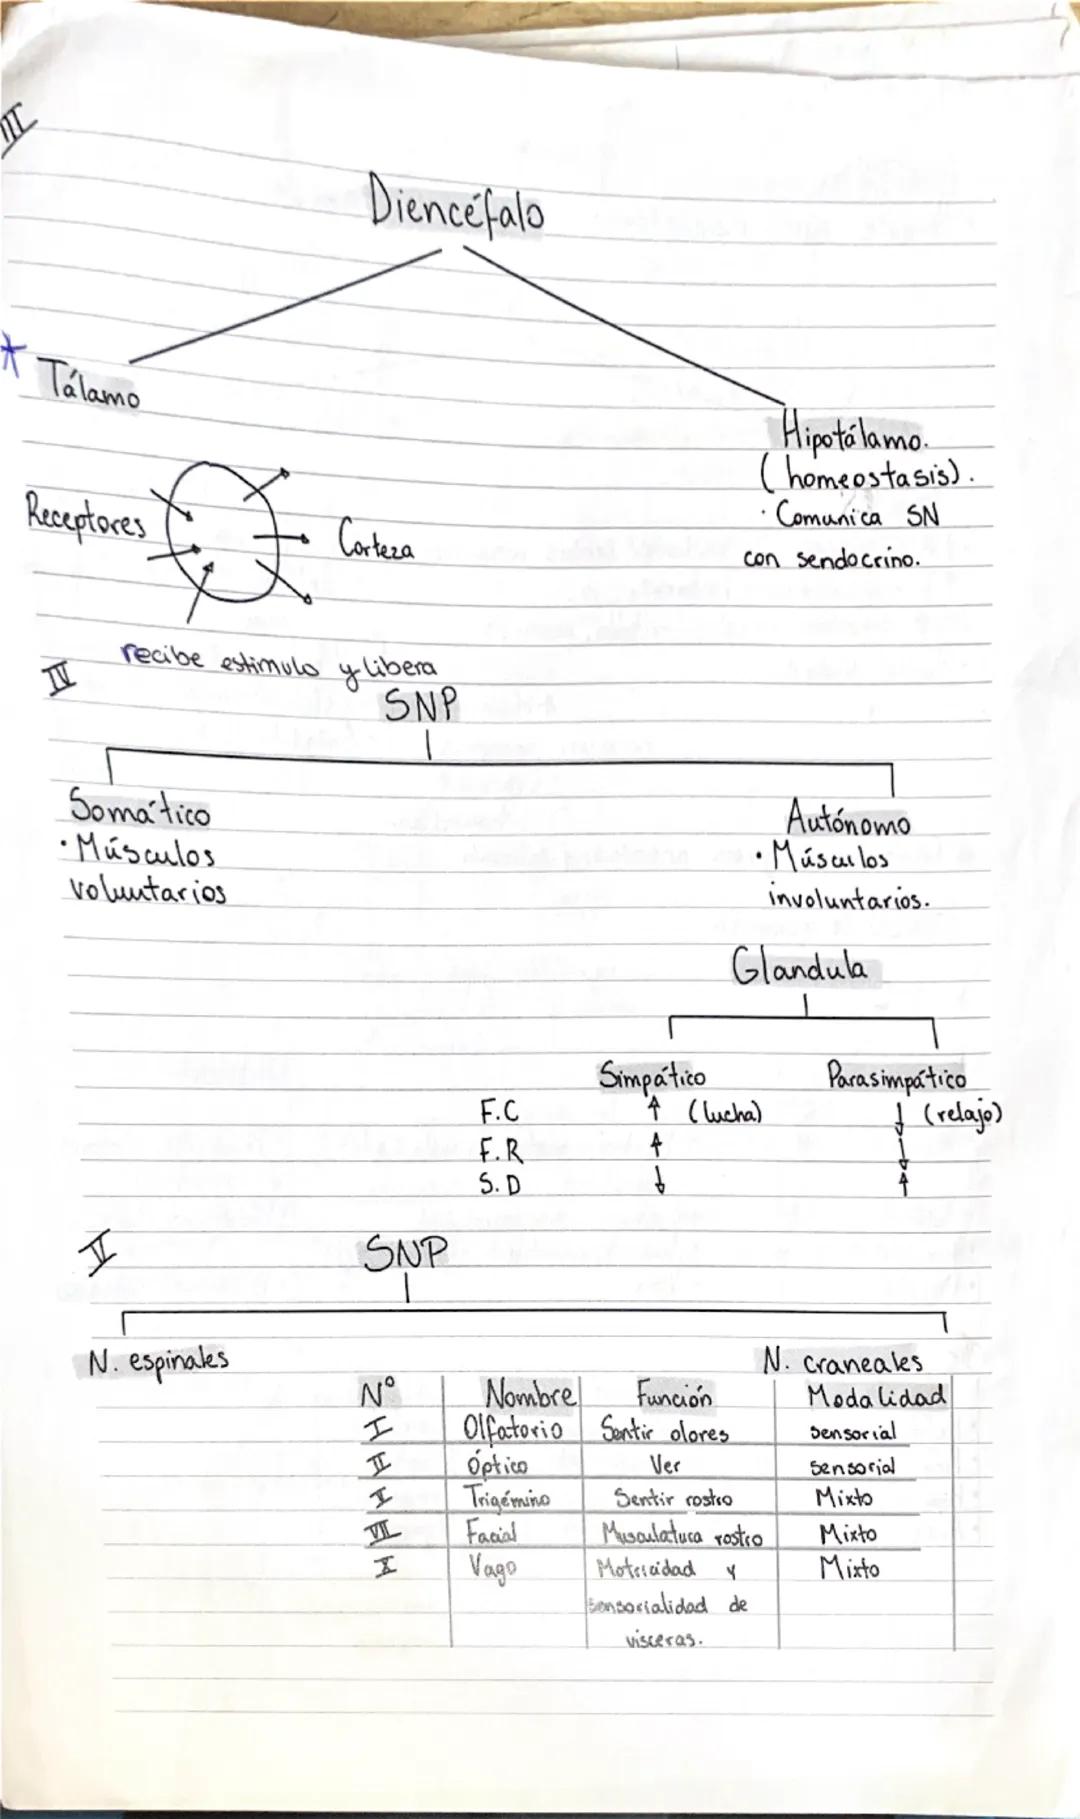 III
Diencéfalo
* Tálamo
Hipotálamo.
(homeostasis).
· Comunica SN
con sendocrino.
Receptores
Corteza
recibe estimulo y libera
IV
SNP
Somático
· Músculos
voluntarios
Autónomo
· Músculos
involuntarios.
Glandula
Simpático Parasimpático
F.C ↑ (lucha) ↓ (relajo)
F.R ↑ ↓
S.D ↓ ↑
V SNP
N. espinales N. craneales
Nº Nombre Función Modalidad
I Olfatorio Sentir olores sensorial
II Óptico Ver sensorial
V Trigémino Sentir rostro Mixto
VII Facial Musculatura rostro Mixto
X Vago Motricidad y Mixto
sensorialidad de
visceras.